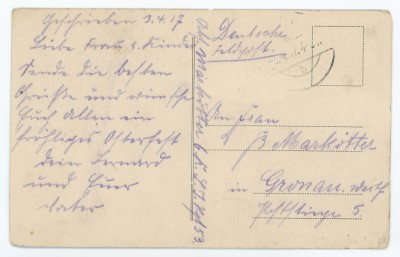 Geschrieben 3.4.17
Liebe Frau u. Kinder
Sende die besten
Grüße und wünsche
Euch Allen ein
fröhliges Osterfest
Dein Bernard
und Euer
Vater
Deutsche
Feldpost.
An Frau
B Markötter
in Gronau. Westf
Poststiege 5.